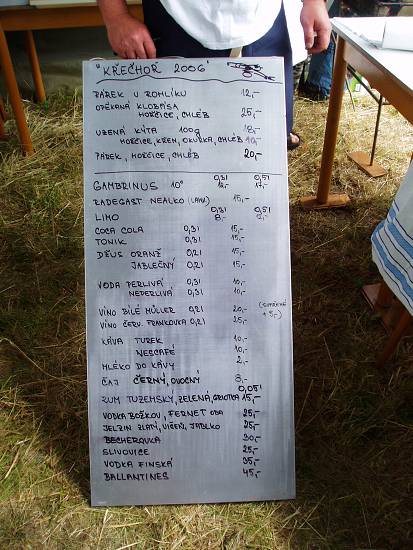 "KŘEČHOŘ 2006"
PÁREK V ROHLÍKU 12,-
OPÉKANÁ KLOBÁSA
HOŘČICE, CHLÉB 25,-
UZENÁ KÝTA 100g
HOŘČICE, KŘEN, OKURKA, CHLÉB
PÁREK, HOŘČICE, CHLÉB 20,-
0,3l 0,5l
GAMBRINUS 10° 12,- 17,-
RADEGAST NEALKO (LAHV.) 15,-
0,3l 0,5l
LIMO
COCA COLA 0,3l 15,-
TONIK 0,3l 15,-
DŽUS ORANŽ 0,2l 15,-
JABLEČNÝ 0,2l 15,-
VODA PERLIVÁ 0,3l 10,-
NEPERLIVÁ 0,3l 10,-
VÍNO BÍLÉ MÜLLER 0,2l 20,- (SVAŘENÉ
VÍNO ČERV. FRANKOVKA 0,2l 25,- +5,-)
KÁVA TUREK 10,-
NESCAFÉ 10,-
MLÉKO DO KÁVY 2,-
ČAJ ČERNÝ, OVOCNÝ 8,-
0,05l
RUM TUZEMSKÝ, ZELENÁ, GRIOTKA 15,-
VODKA BOŽKOV, FERNET 25,-
JELZIN ZLATÝ, VIŠEŇ, JABLKO 25,-
BECHEROVKA 30,-
SLIVOVICE 25,-
VODKA FINSKÁ 35,-
BALLANTINES 45,-